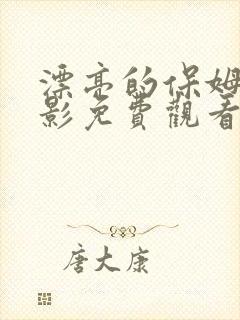 漂亮的保姆
影免費觀看
唐大康